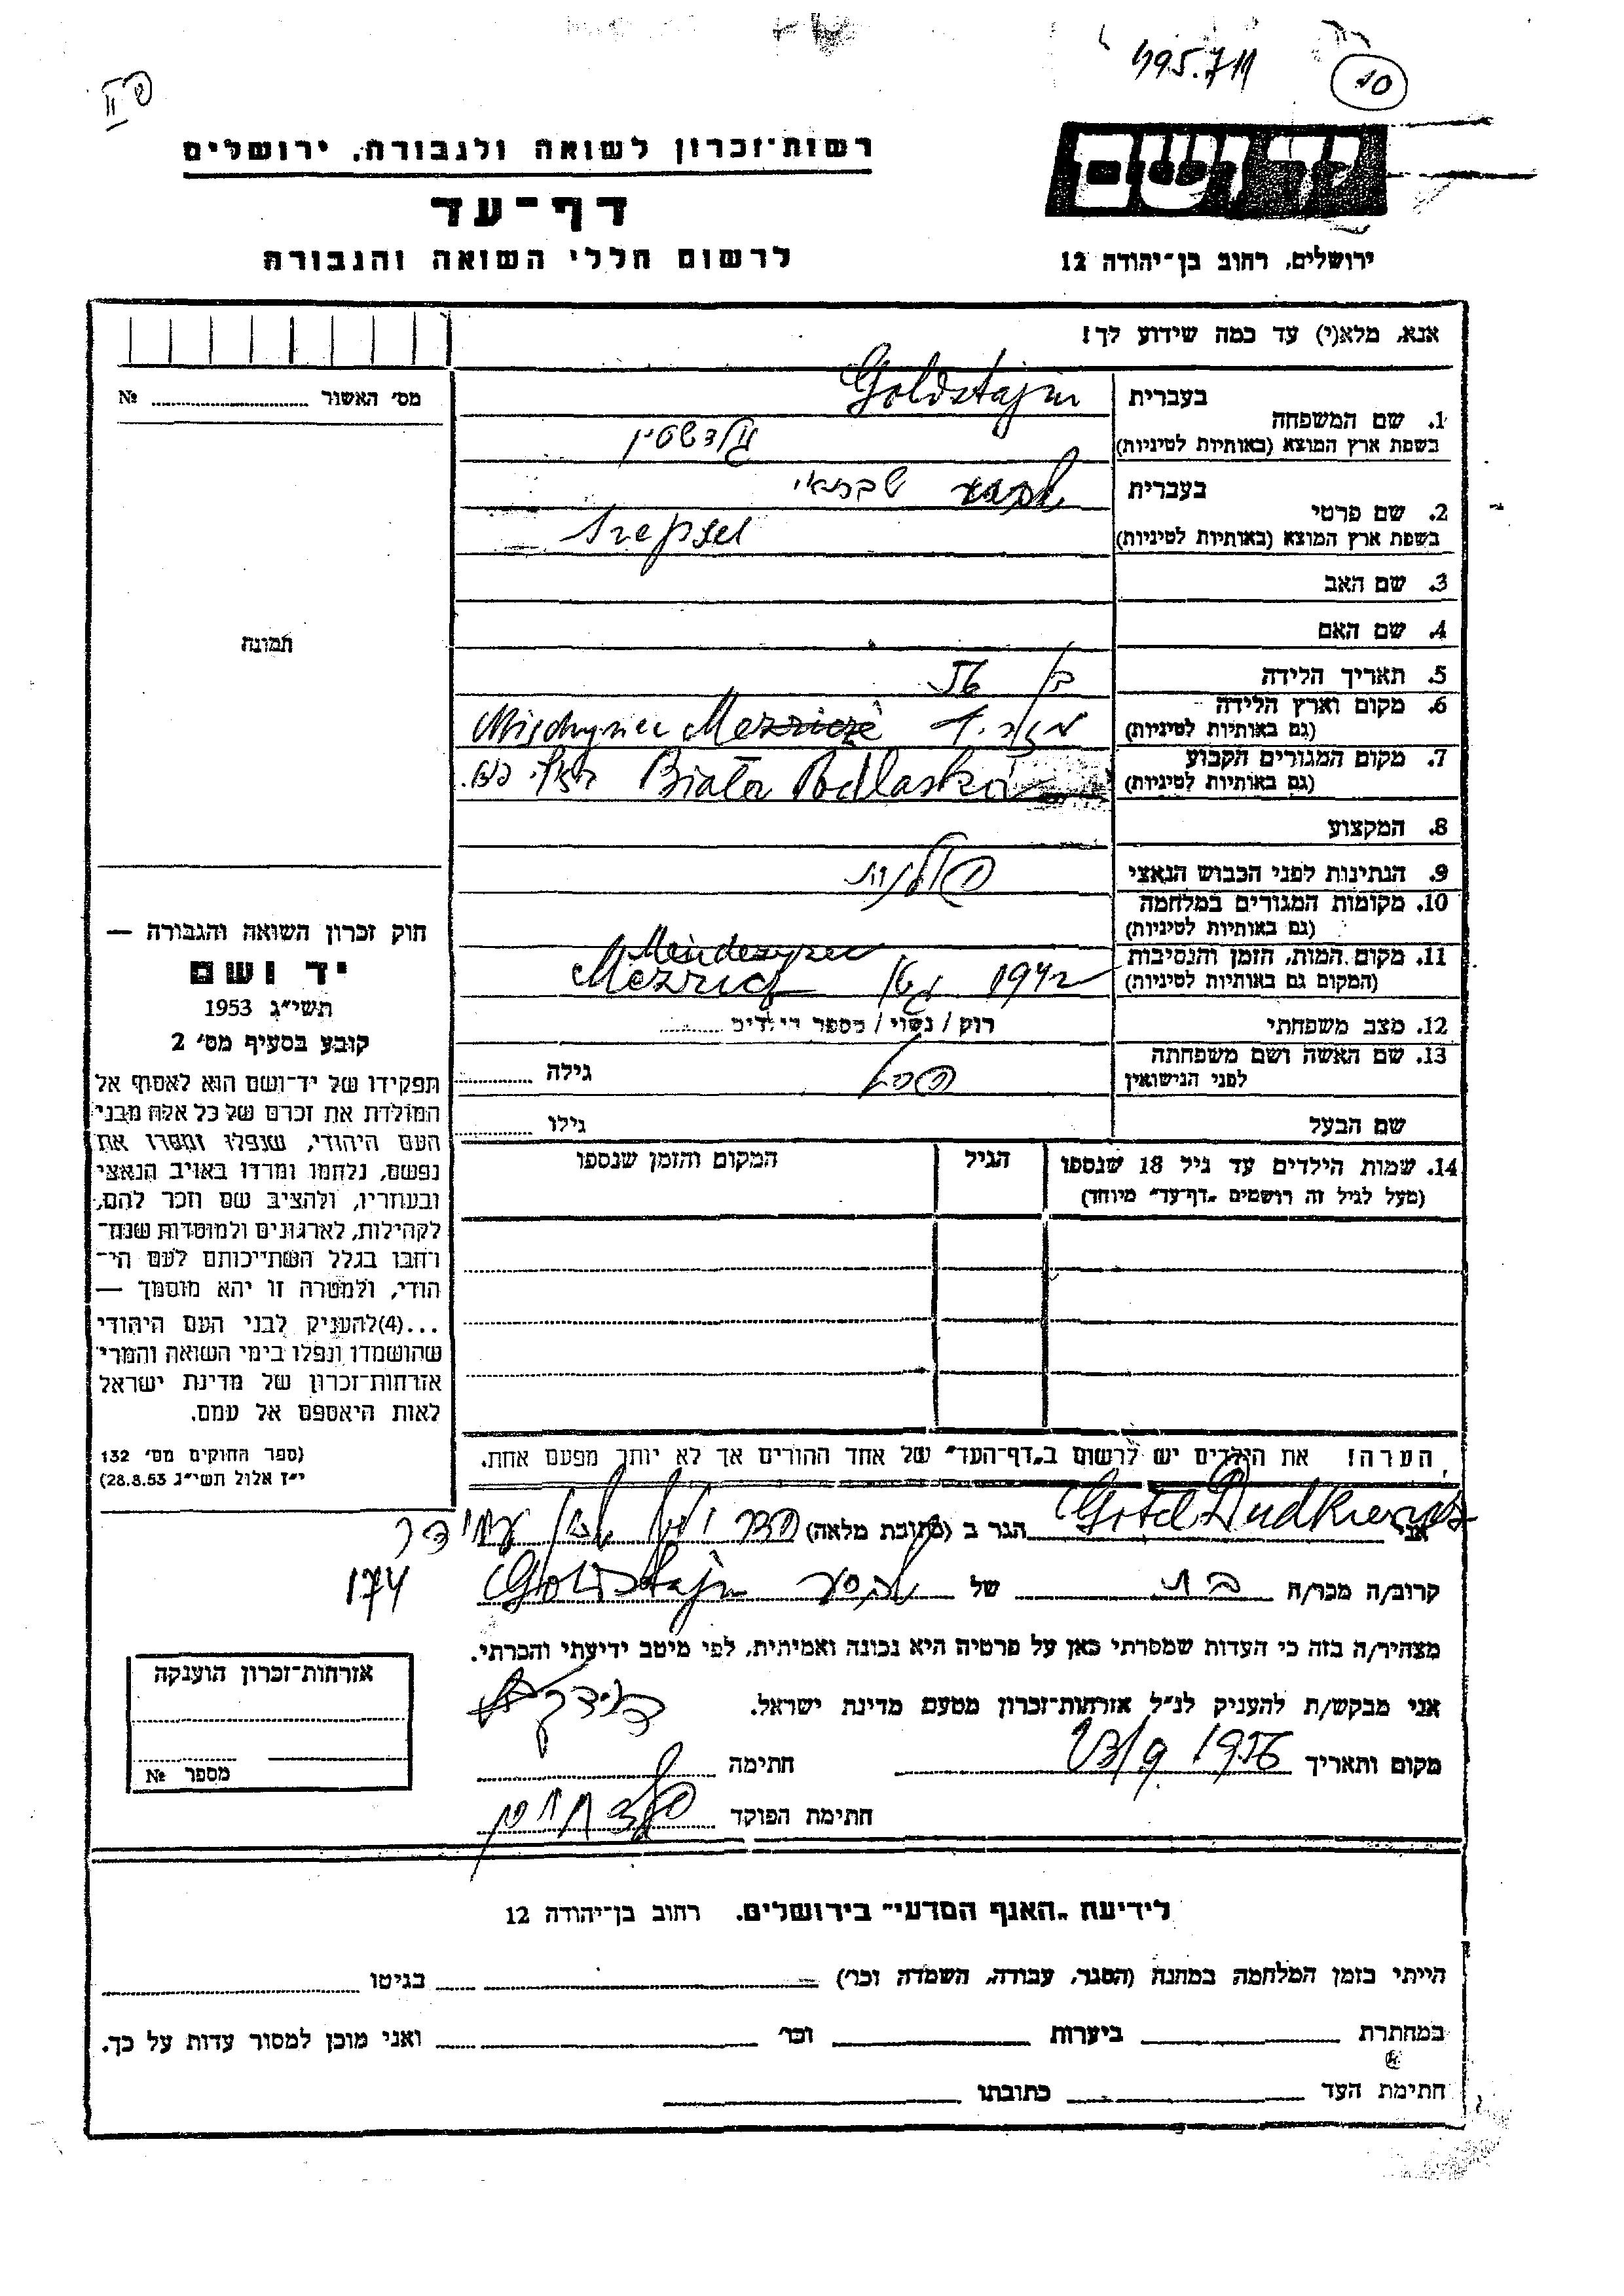 495.711
10
רשות-זכרון לשואה ולגבורה, ירושלים
דף-עד
לרשום חללי השואה והגבורה
יד ושם
ירושלים, רחוב בן-יהודה 12
אנא, מלא(י) עד כמה שידוע לך!
מס׳ האשור № 
תמונה
1. שם המשפחה בעברית Goldstajn
בשפת ארץ המוצא (באותיות לטיניות) גולדשטיין
2. שם פרטי בעברית שבתאי
בשפת ארץ המוצא (באותיות לטיניות) Szepsel
3. שם האב
4. שם האם
5. תאריך הלידה בן 56
6. מקום וארץ הלידה
(גם באותיות לטיניות)
7. מקום המגורים הקבוע Biała Podlaska
(גם באותיות לטיניות)
8. המקצוע
9. הנתינות לפני הכבוש הנאצי פולנית
10. מקומות המגורים במלחמה
(גם באותיות לטיניות)
11. מקום המות, הזמן והנסיבות 1942
(המקום גם באותיות לטיניות)
12. מצב משפחתי רוק / נשוי / מספר הילדים
13. שם האשה ושם משפחתה גילה
לפני הנישואין
שם הבעל גילו
14. שמות הילדים עד גיל 18 שנספו הגיל המקום והזמן שנספו
(מעל לגיל זה רושמים "דף-עד" מיוחד)
חוק זכרון השואה והגבורה —
יד ושם
תשי״ג 1953
קובע בסעיף מס׳ 2
תפקידו של יד-ושם הוא לאסוף אל
המולדת את זכרם של כל אלה מבני
העם היהודי, שנפלו ומסרו את
נפשם, נלחמו ומרדו באויב הנאצי
ובעוזריו, ולהציב שם וזכר להם,
לקהילות, לארגונים ולמוסדות שנח-
רחבו בגלל השתייכותם לעם הי-
הודי, ולמטרה זו יהא מוסמך —
...(4)להעניק לבני העם היהודי
שהושמדו ונפלו בימי השואה והמרי
אזרחות-זכרון של מדינת ישראל
לאות היאספם אל עמם.
(ספר החוקים מס׳ 132
י״ז אלול תשי״ג 28.8.53)
הערה! את הילדים יש לרשום ב"דף-העד" של אחד ההורים אך לא יותר מפעם אחת.
אני הגר ב (כתובת מלאה)
קרוב/ה מכר/ה בת של Goldstajn
174
מצהיר/ה בזה כי העדות שמסרתי כאן על פרטיה היא נכונה ואמיתית, לפי מיטב ידיעתי והכרתי.
אני מבקש/ת להעניק לנ״ל אזרחות-זכרון מטעם מדינת ישראל.
מקום ותאריך 23/9 1956 חתימה
חתימת הפוקד
אזרחות-זכרון הוענקה
מספר №
לידיעת "האגף המדעי" בירושלים. רחוב בן-יהודה 12
הייתי בזמן המלחמה במחנה (הסגר, עבודה, השמדה וכו׳) בגיטו
במחתרת ביערות וכו׳ ואני מוכן למסור עדות על כך.
חתימת העד כתובתו